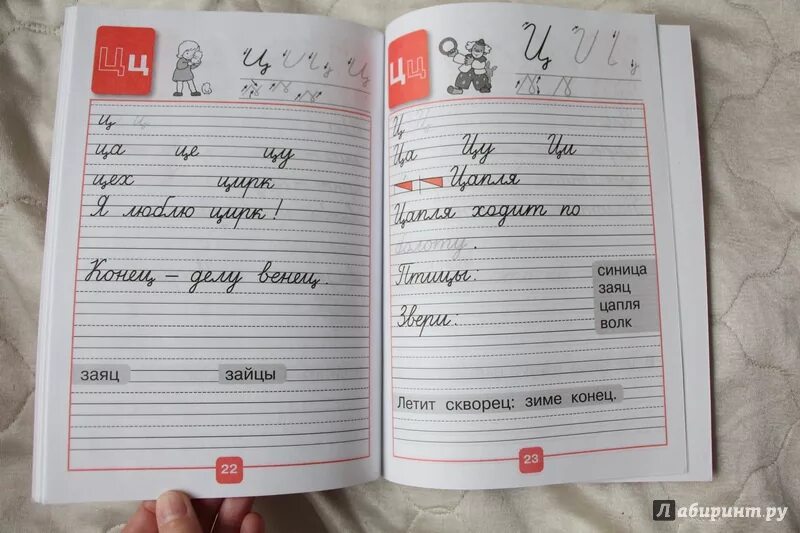 Цц
Ц
ц ц
ца це цу
цех цирк
Я люблю цирк!
Конец – делу венец.
заяц зайцы
22
Цц
Ц
Ц Ц
Ца Цу Ци
Цапля
Цапля ходит по
болоту.
Птицы:
Звери:
синица
заяц
цапля
волк
Летит скворец: зиме конец.
23
Лабиринт.ру